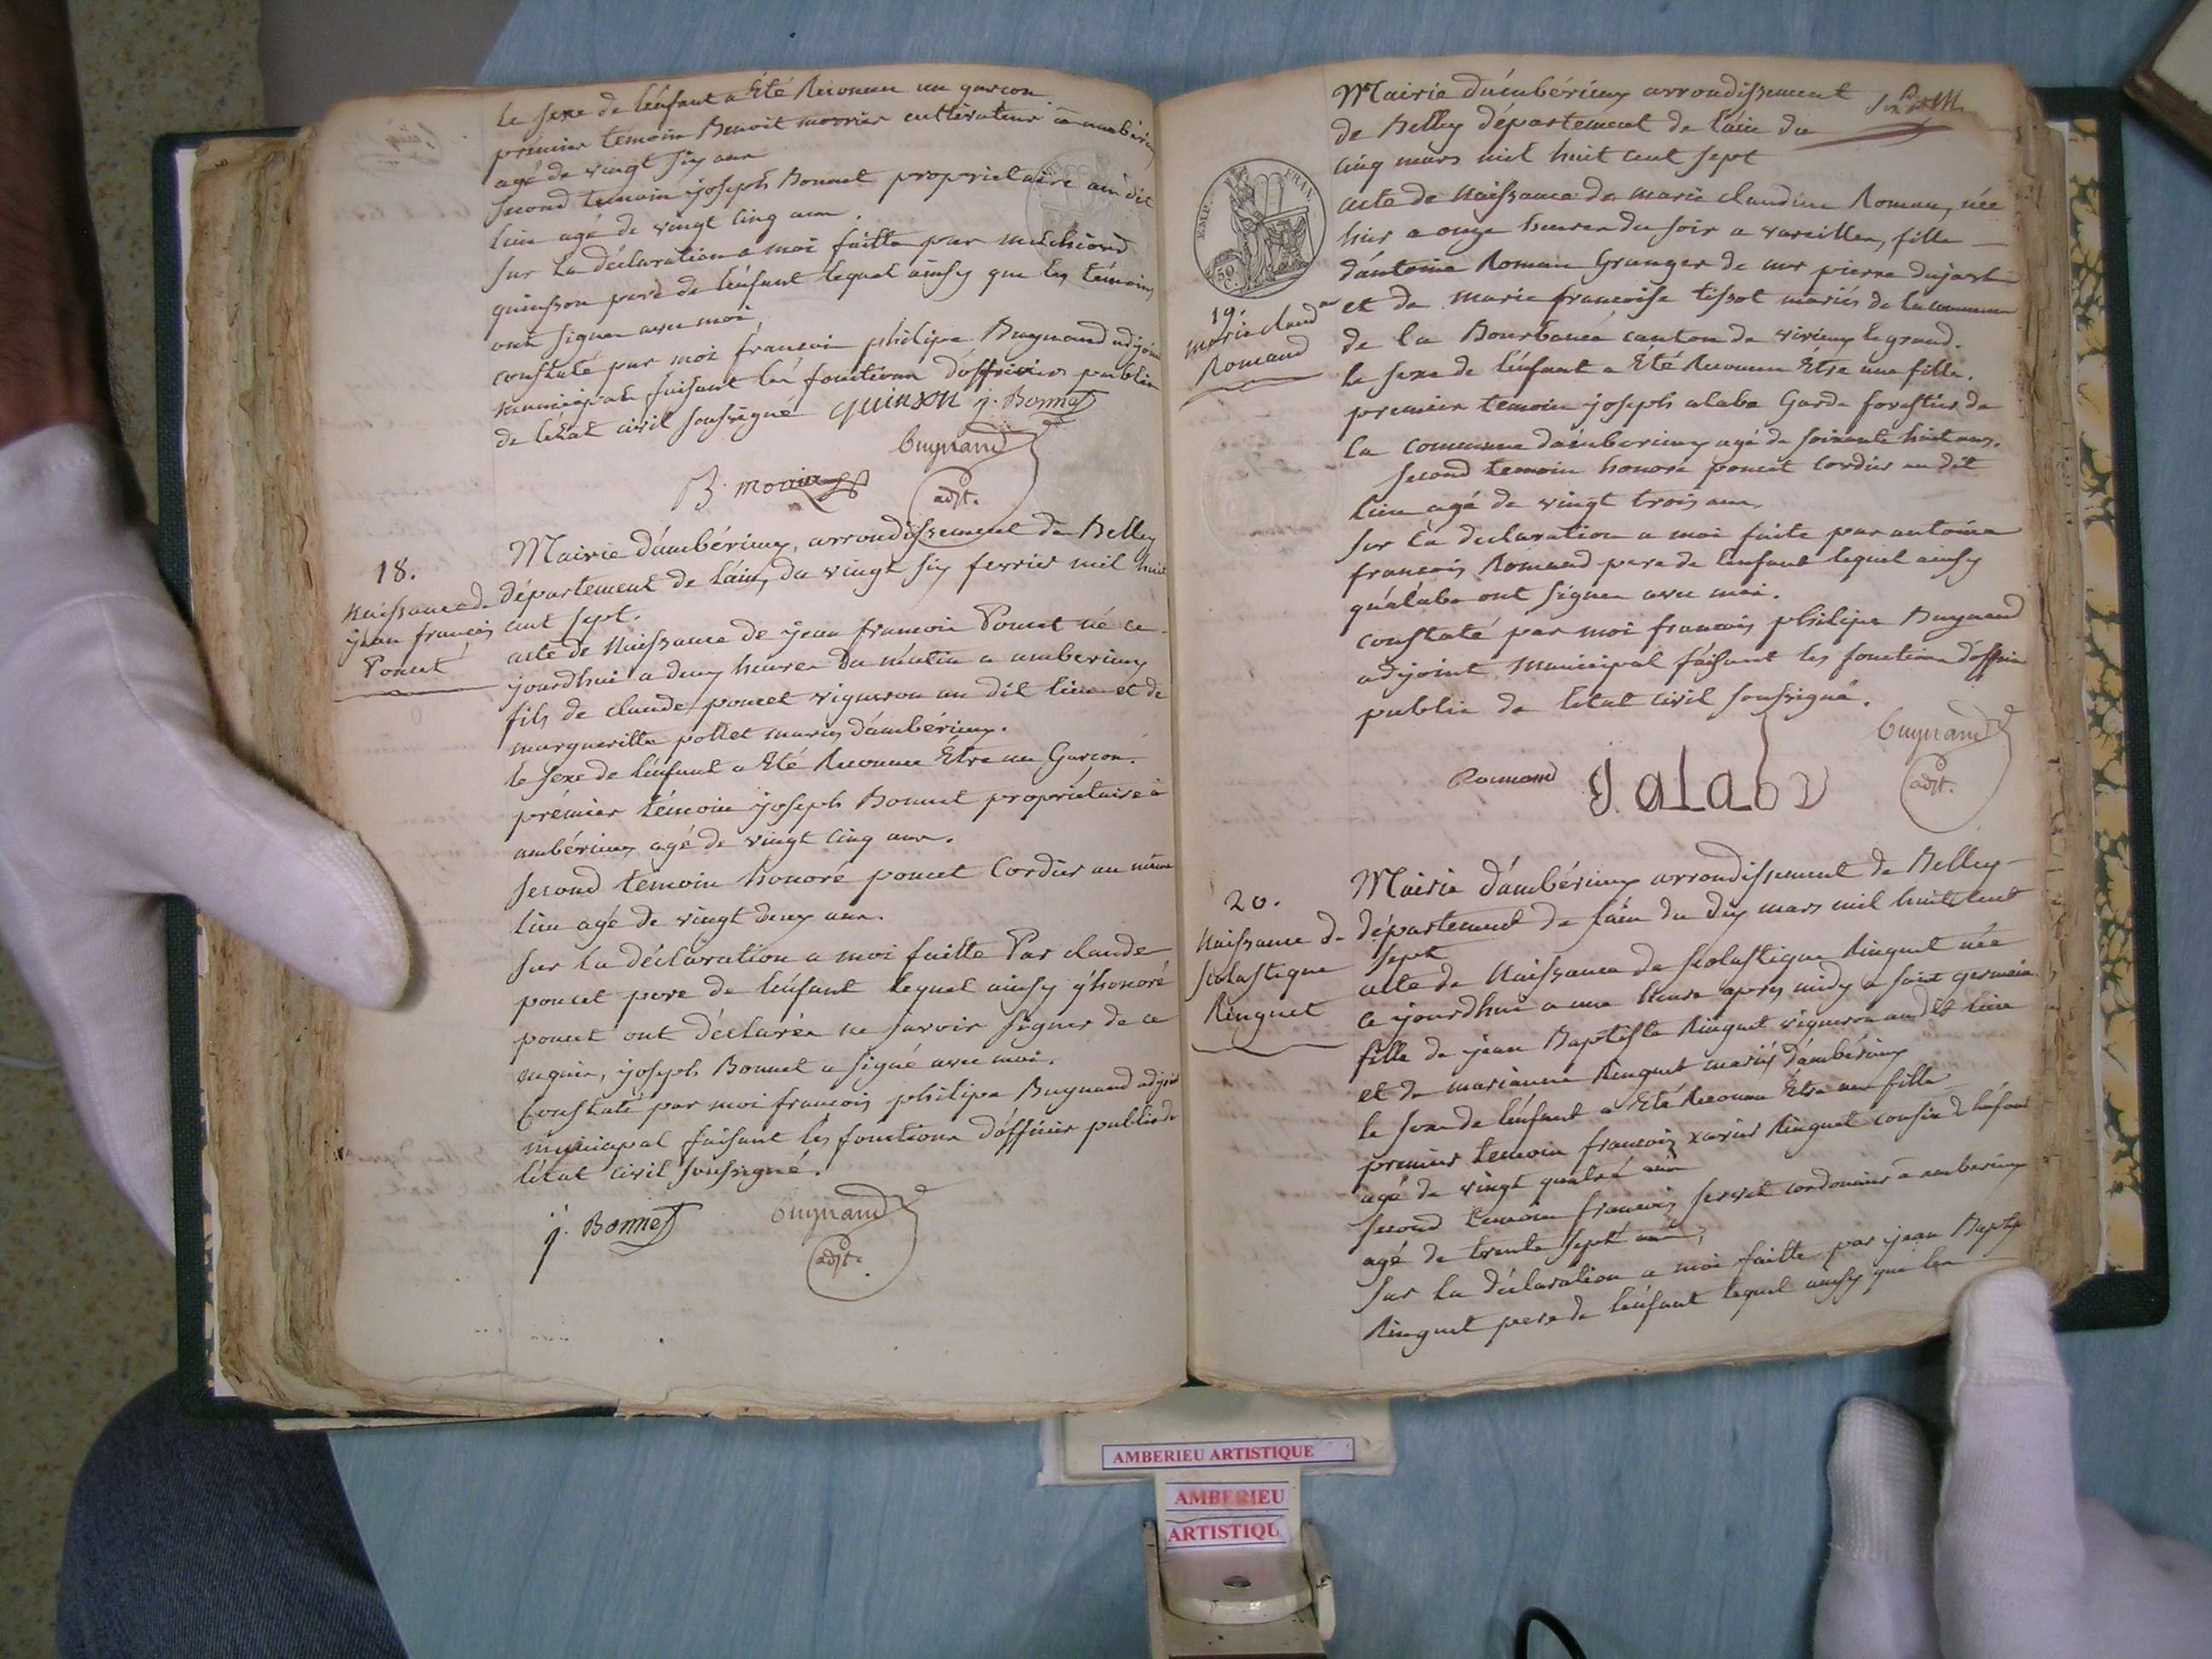 le sexe de lénfant a Eté Reconnu un garcon
premier temoin Benoit morrier cultivateur a ambérieu
agé de vingt six ans
second temoin joseph Bonnet proprietaire au dit
lieu agé de vingt cinq ans.
sur la déclaration a moi faitte par melchiord
quinsson pere de lénfant lequel ainsy que les témoins
ont signer avec moi,
constaté par moi francois philipe Buynand adjoint
municipal faisant les fonctions dófficier public
de létat civil soussigné quinson j. Bonnet
Buynand
B. morrier
adjt.
18.
Naissance de
jean francois
Poncet
Mairie dámbérieux, arrondissement de Belley
département de láin, du vingt six fevrier mil huit
cent sept.
acte de Naissance de jean francois Poncet né ce
jourdhui a deux heures du matin a amberieux
fils de claude poncet vigneron au dit lieu et de
margueritte pottet mariés dámbérieux.
le sexe de lénfant a Eté Reconnu Être un Garcon.
prémier témoin joseph Bonnet propriétaire à
ambérieux agé de vingt cinq ans.
second témoin honoré poncet Cordier au même
lieu agé de vingt deux ans.
sur la déclaration a moi faitte Par claude
poncet pere de lénfant lequel ainsy q'honoré
poncet ont déclarés ne savoir signer de ce
enquis, joseph Bonnet a signé avec moi.
Constaté par moi francois philipe Buynand adjoint
municipal faisant les fonctions dófficier public de
létat civil soussigné.
j. Bonnet
Buynand
adjt.
Mairie dámbérieux arrondissement
de Belley département de láin du
cinq mars mil huit cent sept
EMP. FRAN.
50 C.
19.
marie claud.ne
Romand
acte de Naissance de marie claudine Roman, née
hier a onze heures du soir a vareilles, fille
dántoine Roman Granger de mr pierre dujast
et de marie francoise tissot mariés de la commune
de la Bourbance canton de virieux le grand.
le sexe de lénfant a Eté Reconnu Etre une fille.
premier temoin joseph alabe Garde forestier de
la commune dámberieux agé de soixante huit ans.
second temoin honoré poncet cordier au dit
lieu agé de vingt trois ans.
sur la declaration a moi faite par antoine
francois Romand pere de lenfant lequel ainsy
quálabe ont signer avec moi.
constaté par moi francois philipe Buynand
adjoint municipal faisant les fonctions dófficier
public de létat civil soussigné.
Buynand
Roumand J. alabe
adjt.
20.
Naissance de
scolastique
Ringuet
Mairie dámbérieux arrondissement de Belley
département de láin du dix mars mil huit cent
sept
acte de Naissance de scolastique Ringuet née
ce jourdhui a une heure apres midy a saint germain
fille de jean Baptiste Ringuet vigneron au dit lieu
et de marianne Ringuet mariés dámbérieux
le sexe de lénfant a Eté Reconnu Etre une fille
premier temoin francois xavier Ringuet cousin de lénfant
agé de vingt quatre ans
second temoin francois servet cordonnier a amberieux
agé de trente sept ans,
sur la déclaration a moi faitte par jean Baptiste
Ringuet pere de lénfant lequel ainsy que les
AMBERIEU ARTISTIQUE
AMBERIEU
ARTISTIQU